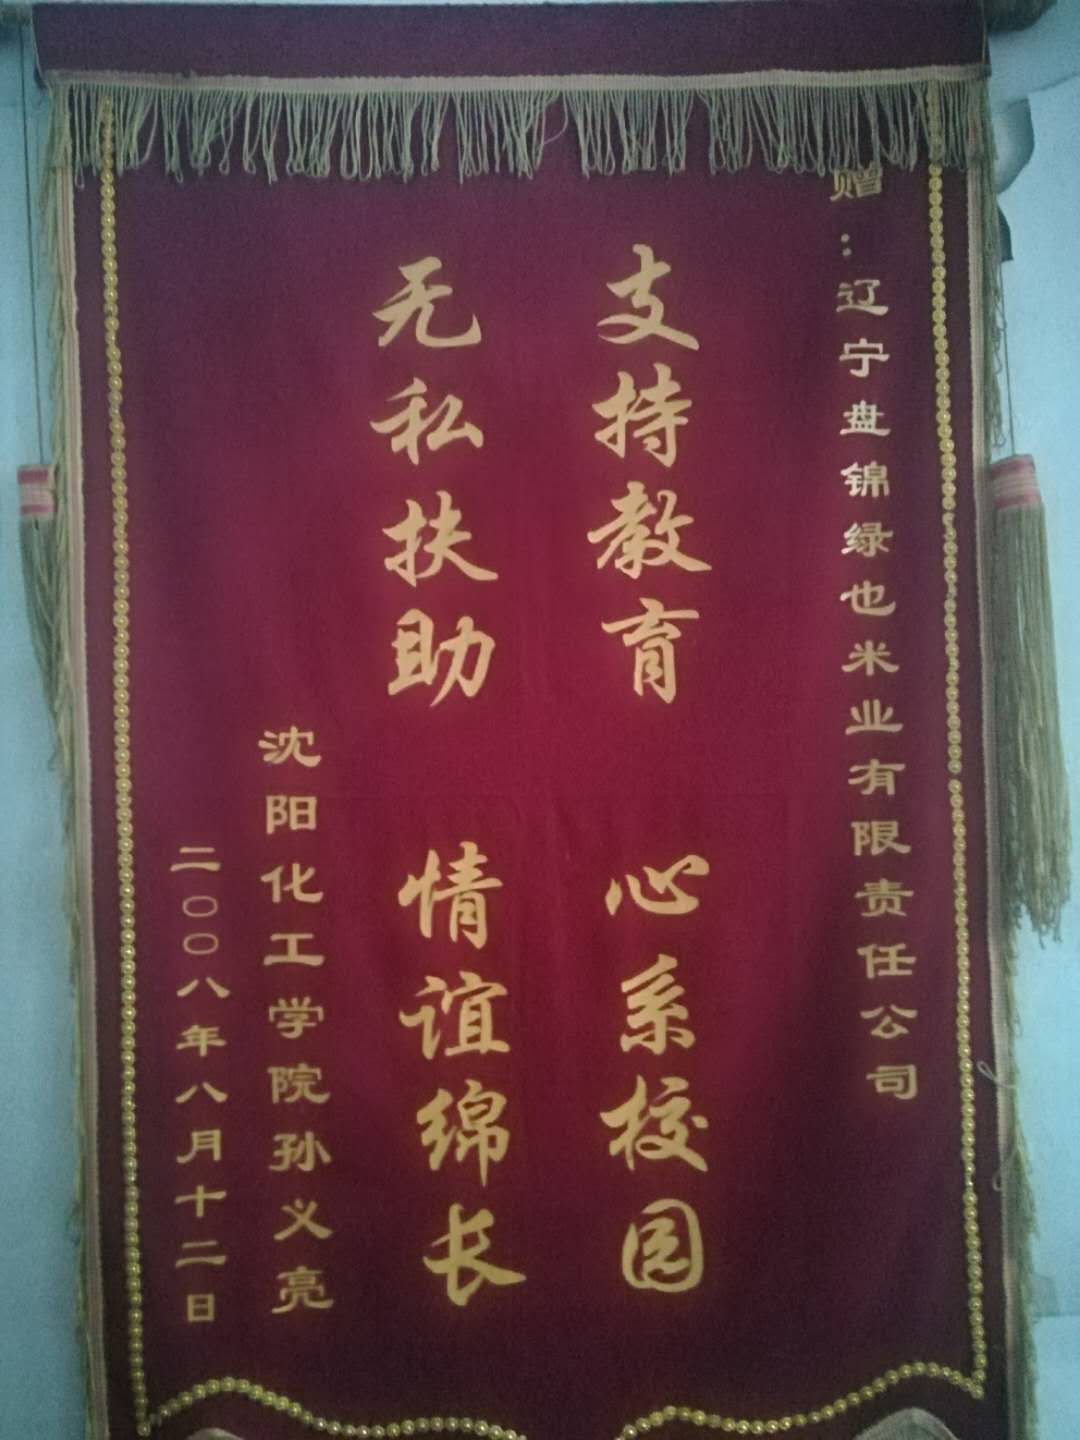 赠：辽宁盘锦绿也米业有限责任公司
支持教育 心系校园
无私扶助 情谊绵长
沈阳化工学院孙义亮
二〇〇八年八月十二日